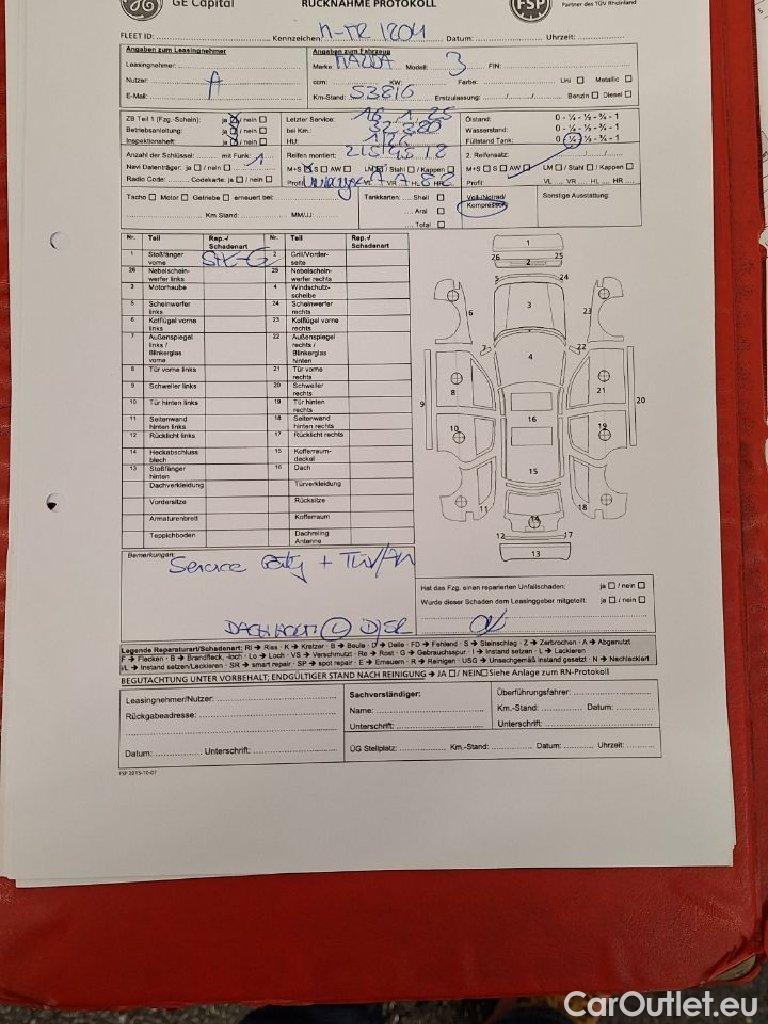 GE Capital
RÜCKNAHME PROTOKOLL
FSP
Partner des TÜV Rheinland
FLEET ID: Kennzeichen: Datum: Uhrzeit:
Angaben zum Leasingnehmer
Angaben zum Fahrzeug
Leasingnehmer: Marke: MAZDA Modell: 3 FIN:
Nutzer: A ccm: KW: Farbe: Uni Metallic
E-Mail: Km-Stand: 53816 Erstzulassung: / / Benzin Diesel
ZB Teil 1 (Fzg.-Schein): ja / nein Letzter Service: 16 1 25 Ölstand: 0 - ¼ - ½ - ¾ - 1
Betriebsanleitung: ja / nein bei Km: 32 380 Wasserstand: 0 - ¼ - ½ - ¾ - 1
Inspektionsheft ja / nein HU: 1/26 Füllstand Tank: 0 - ¼ - ½ - ¾ - 1
Anzahl der Schlüssel: mit Funk: 1 Reifen montiert: 215 45 18 2. Reifensatz:
Navi Datenträger: ja / nein M+S S AW LM / Stahl / Kappen M+S S AW LM / Stahl / Kappen
Radio Code: Codekarte: ja / nein Profil VL VR HL HR Profil: VL VR HL HR
Tacho Motor Getriebe erneuert bei: Tankkarten: Shell Voll-/Notrad/ Sonstige Ausstattung:
Aral Kompressor
Km Stand: MM/JJ Total
Nr. Teil Rep./ Schadenart Nr. Teil Rep./ Schadenart
1 Stoßfänger vorne 2 Grill/Vorderseite
26 Nebelscheinwerfer links 25 Nebelscheinwerfer rechts
3 Motorhaube 4 Windschutzscheibe
5 Scheinwerfer links 24 Scheinwerfer rechts
6 Kotflügel vorne links 23 Kotflügel vorne rechts
7 Außenspiegel links / Blinkerglas vorne 22 Außenspiegel rechts / Blinkerglas hinten
8 Tür vorne links 21 Tür vorne rechts
9 Schweller links 20 Schweller rechts
10 Tür hinten links 19 Tür hinten rechts
11 Seitenwand hinten links 18 Seitenwand hinten rechts
12 Rücklicht links 17 Rücklicht rechts
14 Heckabschluss blech 15 Kofferraumdeckel
13 Stoßfänger hinten 16 Dach
Dachverkleidung Türverkleidung
Vordersitze Rücksitze
Armaturenbrett Kofferraum
Teppichboden Dachreling Antenne
Bemerkungen:
Hat das Fzg. einen reparierten Unfallschaden: ja / nein
Wurde dieser Schaden dem Leasinggeber mitgeteilt: ja / nein
Legende Reparaturart/Schadenart: RI → Riss - K → Kratzer - B → Beule - D → Delle - FD → Fehlend - S → Steinschlag - Z → Zerbrochen - A → Abgenutzt
F → Flecken - B → Brandfleck, -loch - Lo → Loch - VS → Verschmutzt - Ro → Rost - G → Gebrauchsspur - I → Instand setzen - L → Lackieren
I/L → Instand setzen/Lackieren - SR → smart repair - SP → spot repair - E → Erneuern - R → Reinigen - USG → Unsachgemäß instand gesetzt - N → Nachlackiert
BEGUTACHTUNG UNTER VORBEHALT; ENDGÜLTIGER STAND NACH REINIGUNG → JA / NEIN Siehe Anlage zum RN-Protokoll
Leasingnehmer/Nutzer: Sachverständiger: Überführungsfahrer:
Rückgabeadresse: Name: Km.-Stand: Datum:
Unterschrift: Unterschrift:
Datum: Unterschrift: ÜG Stellplatz: Km.-Stand: Datum: Uhrzeit:
CarOutlet.eu